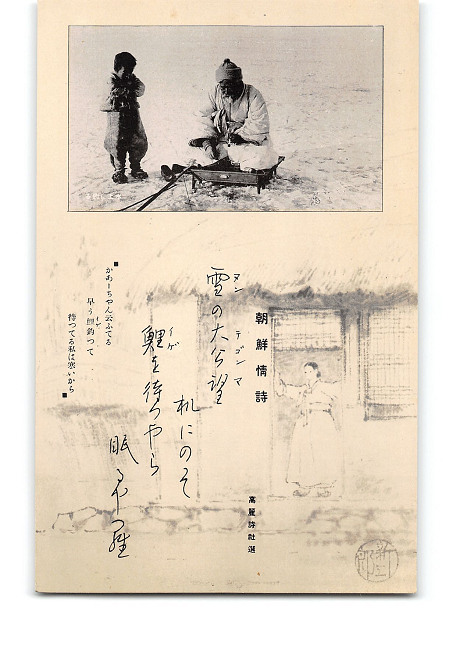 朝鮮情詩
ヌン テゴンマ
雪の大公望
鯉を待つやら
眠るやら
高麗詩社選
■かあーちやん云ふてる
早う鯉釣つて
待つてる私は寒いから■